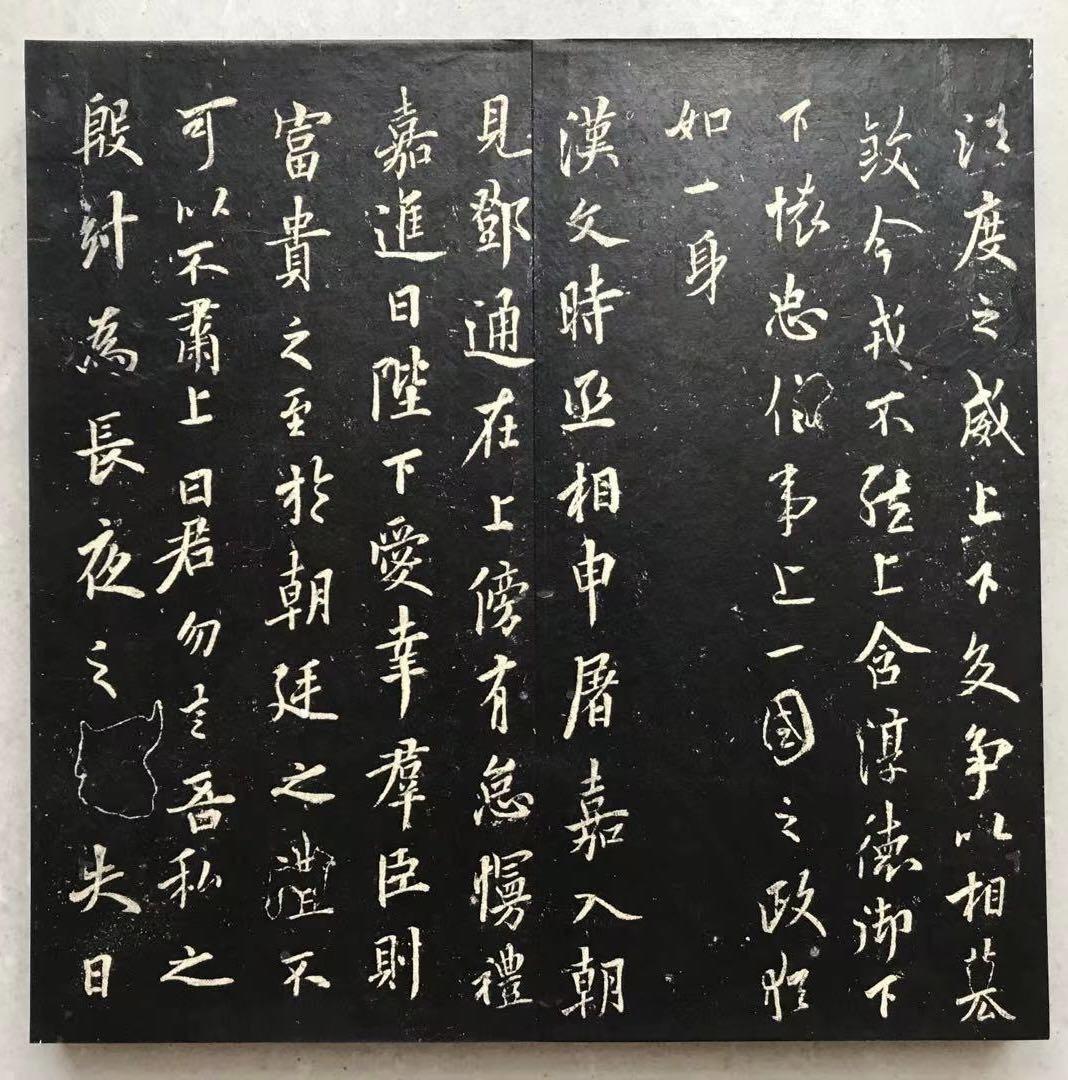 法度之威上下交争以相篡
弑今戎不然上含淳德御下
下懷忠信事上一國之政猶
如一身
漢文時丞相申屠嘉入朝
見鄧通在上傍有怠慢禮
嘉進曰陛下愛幸羣臣則
富貴之至於朝廷之禮不
可以不肅上曰君勿言吾私之
殷紂為長夜之失日